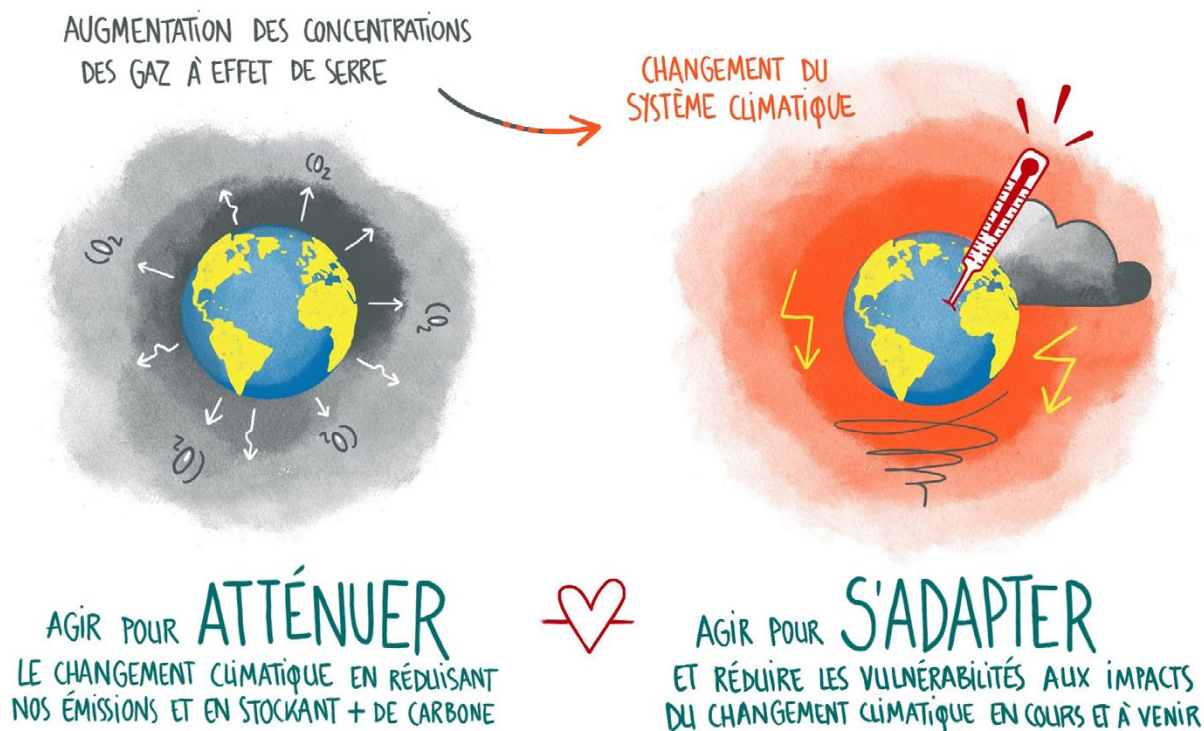 AUGMENTATION DES CONCENTRATIONS
DES GAZ À EFFET DE SERRE
CHANGEMENT DU
SYSTÈME CLIMATIQUE
CO2
CO2
CO2
CO2
CO2
AGIR POUR ATTÉNUER
LE CHANGEMENT CLIMATIQUE EN RÉDUISANT
NOS ÉMISSIONS ET EN STOCKANT + DE CARBONE
AGIR POUR S'ADAPTER
ET RÉDUIRE LES VULNÉRABILITÉS AUX IMPACTS
DU CHANGEMENT CLIMATIQUE EN COURS ET À VENIR